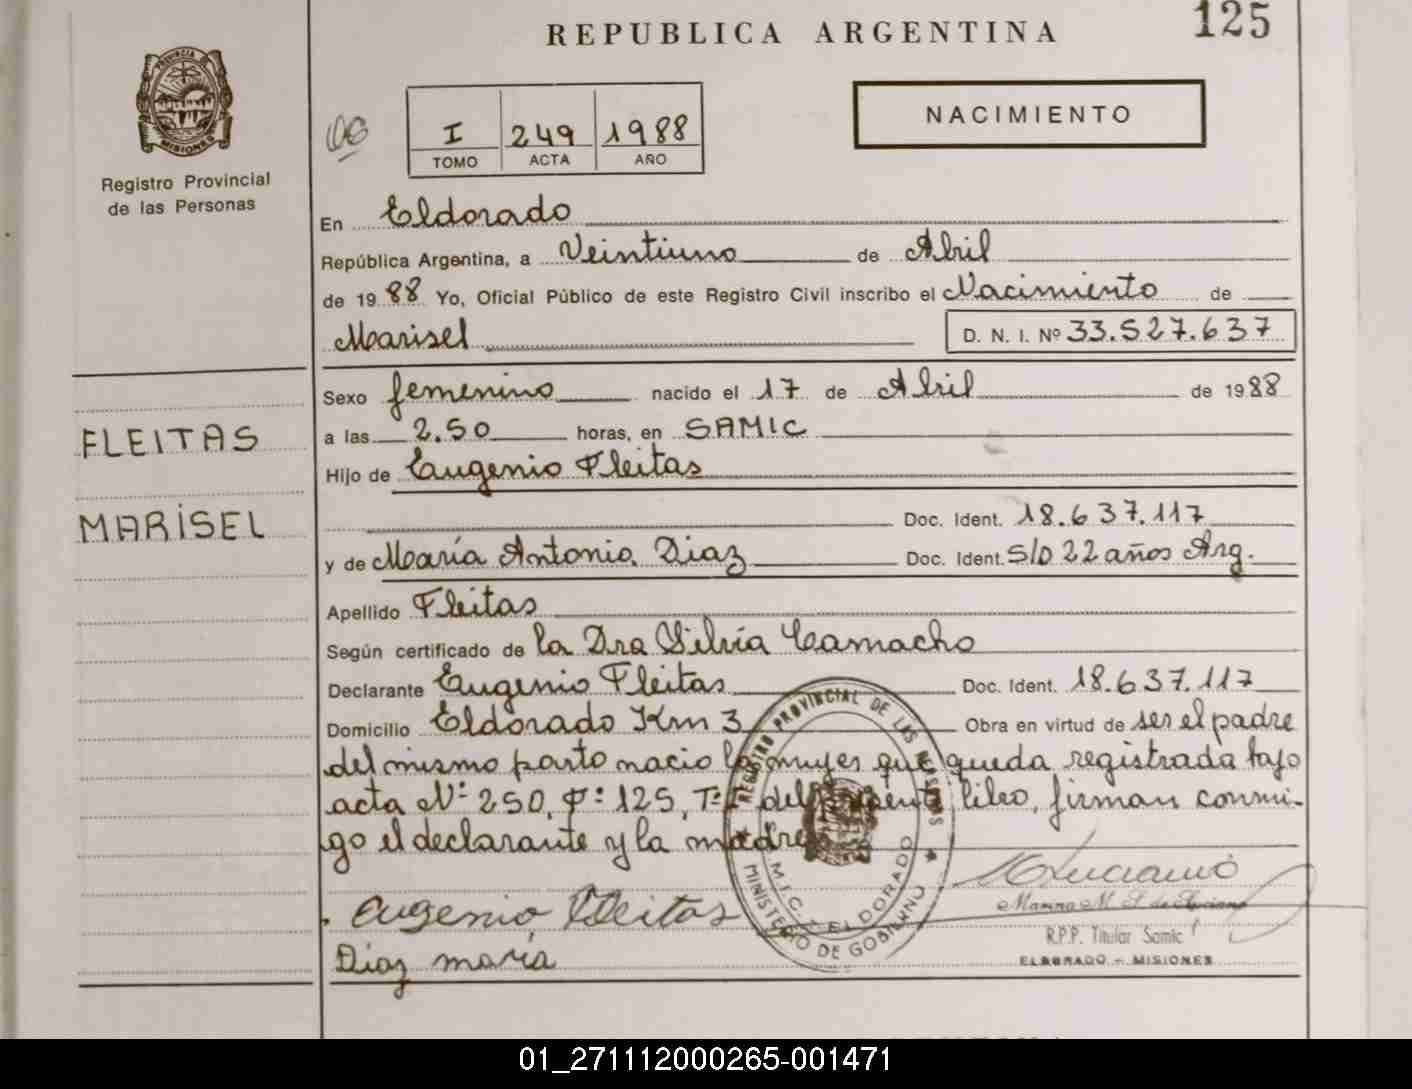 REPUBLICA ARGENTINA
125
PROVINCIA DE
MISIONES
Registro Provincial
de las Personas
I 249 1988
TOMO ACTA AÑO
NACIMIENTO
En Eldorado
República Argentina, a Veintiuno de Abril
de 1988 Yo, Oficial Público de este Registro Civil inscribo el Nacimiento de
Marisel D. N. I. Nº 33.527.637
Sexo femenino nacido el 17 de Abril de 1988
FLEITAS
a las 2.50 horas, en SAMIC
Hijo de Eugenio Fleitas
MARISEL
Doc. Ident. 18.637.117
y de María Antonia Diaz Doc. Ident. S/D 22 años Arg.
Apellido Fleitas
Según certificado de la Dra Silvia Camacho
Declarante Eugenio Fleitas Doc. Ident. 18.637.117
Domicilio Eldorado Km 3 Obra en virtud de ser el padre
del mismo parto nacio la mujer que queda registrada bajo
acta Nº 250, Fº 125, Tº I del presente libro, firman conmi-
go el declarante y la madre
REGISTRO PROVINCIAL DE LAS PERSONAS
MINISTERIO DE GOBIERNO
ELDORADO
Eugenio Fleitas
Luciano
R.P.P. Titular Samic
Diaz maría
ELDORADO - MISIONES
01_271112000265-001471